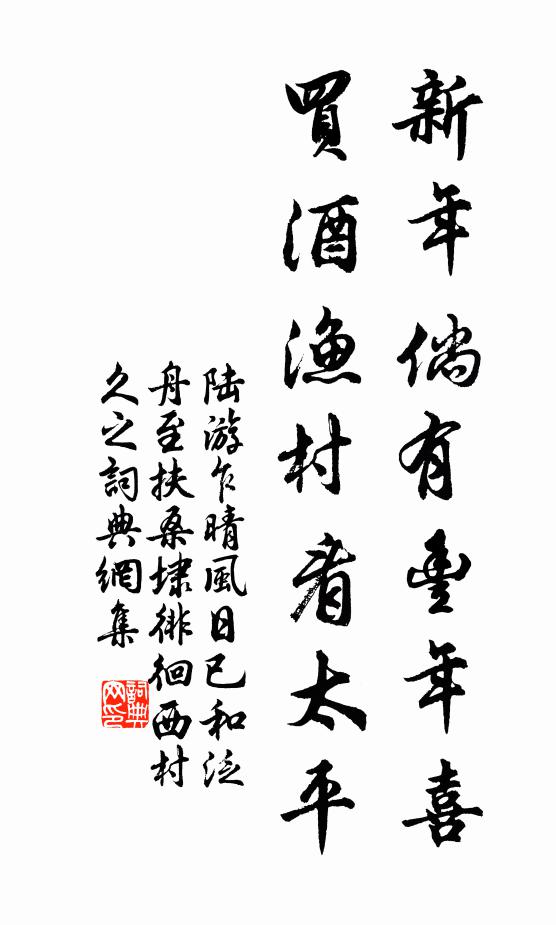 新年倘有豐年喜
買酒漁村看太平
陆游乍晴風日已和泛
舟至扶桑埭徘徊西村
久之詞典網集
詞典網印